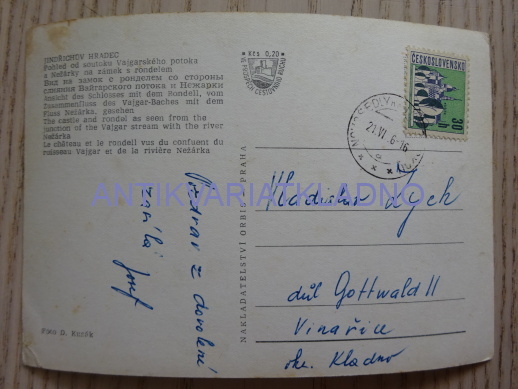 JINDŘICHŮV HRADEC
Pohled od soutoku Vajgarského potoka
s Nežárky na zámek s rondelem
Вид на замок с ронделем со стороны
слияния Найгарского потока и Нежарки
Ansicht des Schlosses mit dem Rondell, vom
Zusammenfluss des Vajgar-Baches mit dem
Fluss Nežárka, gesehen
The castle and rondel as seen from the
junction of the Vajgar stream with the river
Nežárka
Le château et le rondell vus du confluent du
ruisseau Vajgar et de la rivière Nežárka
Kčs 0,20
ČESKOSLOVENSKO
30 h
21.VI. 6-16
ANTIKVARIATKLADNO
Pozdrav z dovolené
zasílá Josef
NAKLADATELSTVÍ ORBIS, PRAHA
Ladislav
důl Gottwald II
Vinařice
okr. Kladno
Foto D. Kozák